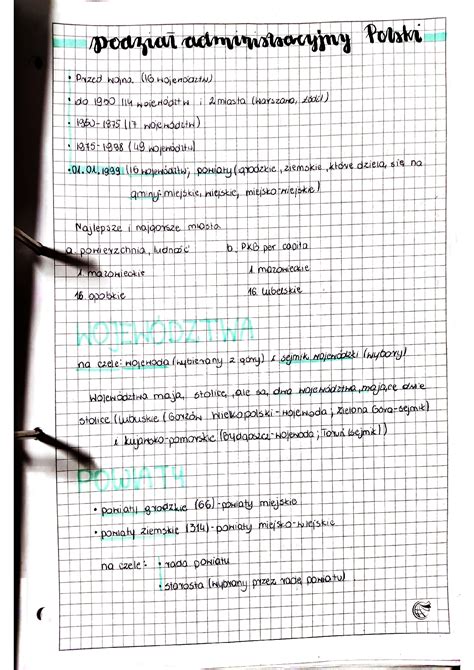 podział administracyjny Polski
• Przed wojną (16 województw)
• do 1950 (14 województw i 2 miasta (Warszawa, Łódź)
• 1950-1975 (17 województw)
• 1975-1998 (49 województw)
• 01.01.1999 (16 województw, powiaty (grodzkie, ziemskie, które dzielą się na
gminy-miejskie, wiejskie, miejsko-wiejskie)
Najlepsze i najgorsze miasta
a. powierzchnia, ludność b. PKB per capita
1. mazowieckie 1. mazowieckie
16. opolskie 16. lubelskie
WOJEWÓDZTWA
na czele: wojewoda (wybierany z góry) i sejmik wojewódzki (wybory)
Województwa mają stolice, ale są dwa województwa mające dwie
stolice (lubuskie (Gorzów Wielkopolski-wojewoda; Zielona Góra-sejmik)
i kujawsko-pomorskie (Bydgoszcz-wojewoda; Toruń (sejmik))
POWIATY
• powiaty grodzkie (66)-powiaty miejskie
• powiaty ziemskie (314)-powiaty miejsko-wiejskie
na czele: • rada powiatu
• starosta (wybrany przez radę powiatu)